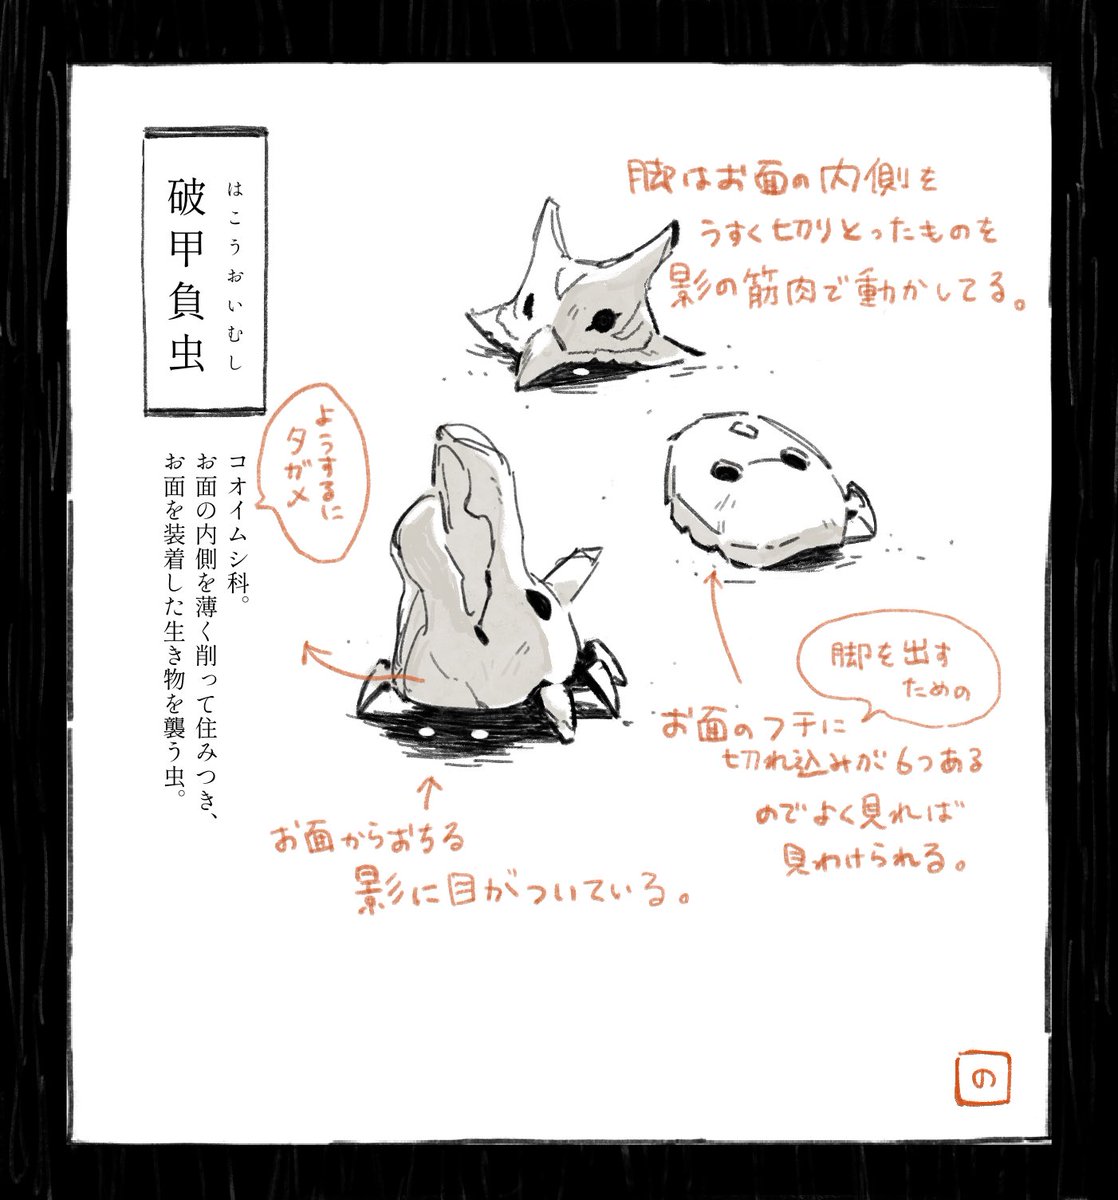 破甲負虫
はこうおいむし
コオイムシ科。
お面の内側を薄く削って住みつき、
お面を装着した生き物を襲う虫。
ようするに
タガメ
脚はお面の内側を
うすく切りとったものを
影の筋肉で動かしてる。
脚を出す
ための
お面のフチに
切れ込みが6つある
のでよく見れば
見わけられる。
お面からおちる
影に目がついている。
の